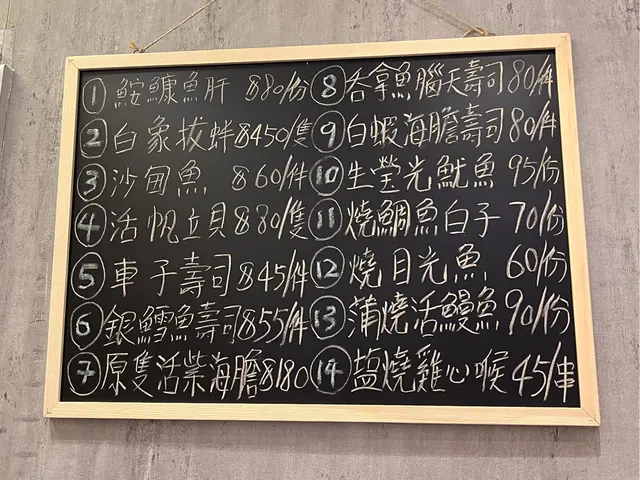 ① 鮟鱇魚肝 $80/份
② 白象拔蚌$450/隻
③ 沙甸魚 $60/件
④ 活帆立貝$80/隻
⑤ 車子壽司$45/件
⑥ 銀鱈魚壽司$55/件
⑦ 原隻活紫海膽$180
⑧ 吞拿魚腦天壽司80/件
⑨ 白蝦海膽壽司80/件
⑩ 生瑩光魷魚 95/份
⑪ 燒鯛魚白子 70/份
⑫ 燒目光魚 60/份
⑬ 蒲燒活鰻魚 90/份
⑭ 塩燒雞心喉 45/串